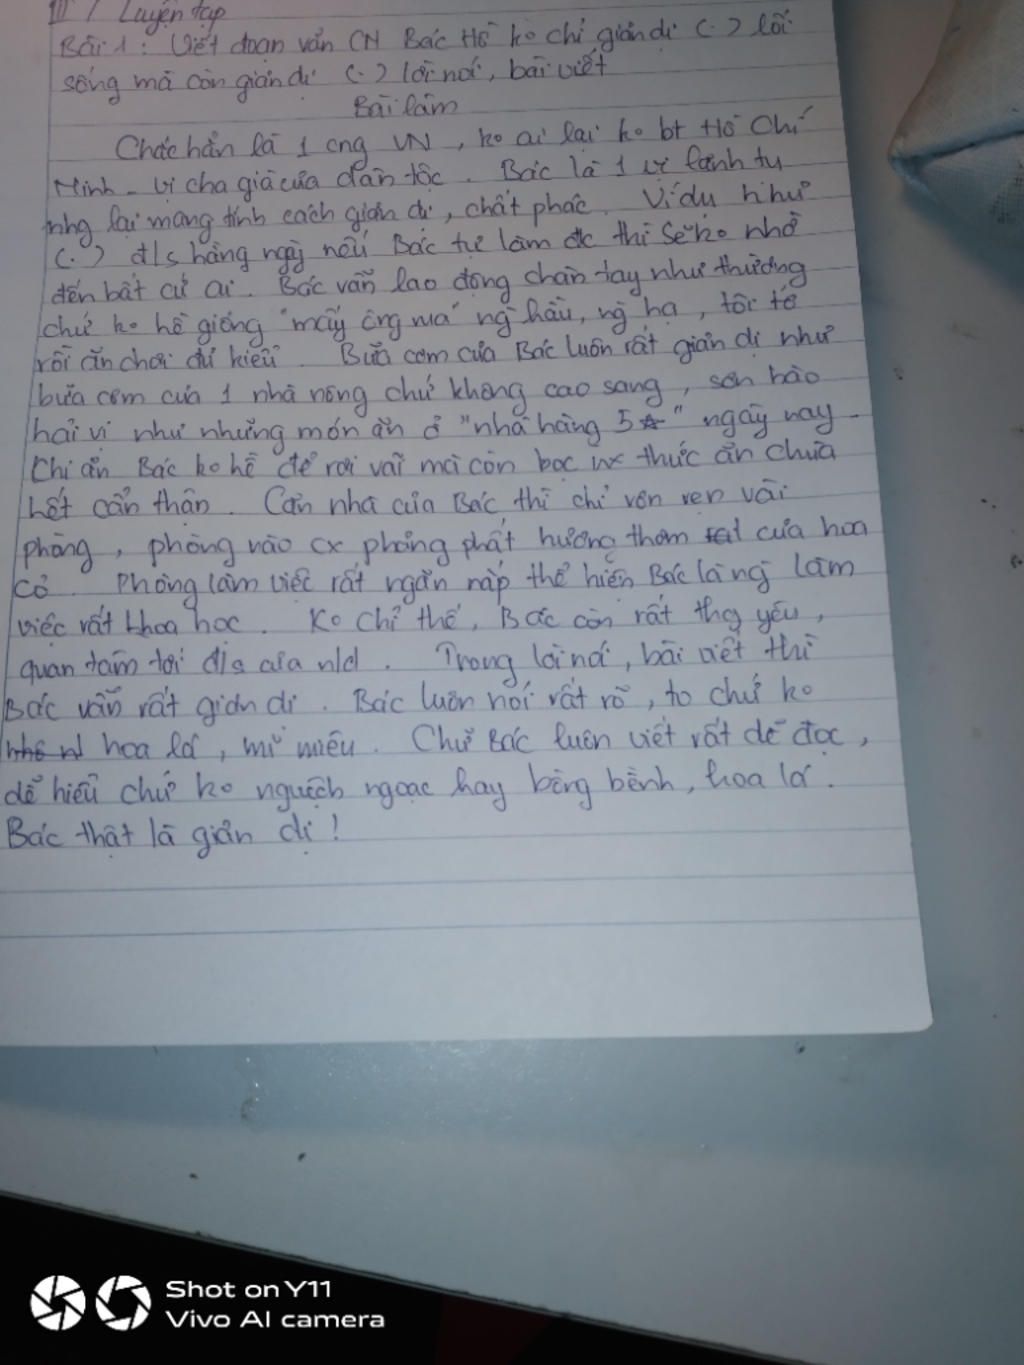 III / Luyện tập
Bài 1: Viết đoạn văn CN Bác Hồ ko chỉ giản dị (.) lối
sống mà còn giản dị (.) lời nói, bài viết
Bài làm
Chắc hẳn là 1 cng VN, ko ai lại ko bt Hồ Chí
Minh - vị cha già của dân tộc. Bác là 1 vị lãnh tụ
nhg lại mang tính cách giản dị, chất phác. Ví dụ như
(.) đ/s hằng ngày nếu Bác tự làm đc thì sẽ ko nhờ
đến bất cứ ai. Bác vẫn lao động chân tay như thường
chứ ko hề giống "mấy ông vua" ng hầu, ng hạ, tôi tớ
rồi ăn chơi đủ kiểu. Bữa cơm của Bác luôn rất giản dị như
bữa cơm của 1 nhà nông chứ không cao sang, sơn hào
hải vị như những món ăn ở "nhà hàng 5☆" ngày nay.
Khi ăn Bác ko hề để rơi vãi mà còn bọc thức ăn chưa
hết cẩn thận. Căn nhà của Bác thì chỉ vỏn vẹn vài
phòng, phòng nào cx phảng phất hương thơm của hoa
cỏ. Phòng làm việc rất ngăn nắp thể hiện Bác là ng làm
việc rất khoa học. Ko chỉ thế, Bác còn rất thg yêu,
quan tâm tới đ/s của n/d. Trong lời nói, bài viết thì
Bác vẫn rất giản dị. Bác luôn nói rất rõ, to chứ ko
hoa lá, mĩ miều. Chữ Bác luôn viết rất dễ đọc,
dễ hiểu chứ ko nguệch ngoạc hay bồng bềnh, hoa lá.
Bác thật là giản dị!
Shot on Y11
Vivo AI camera